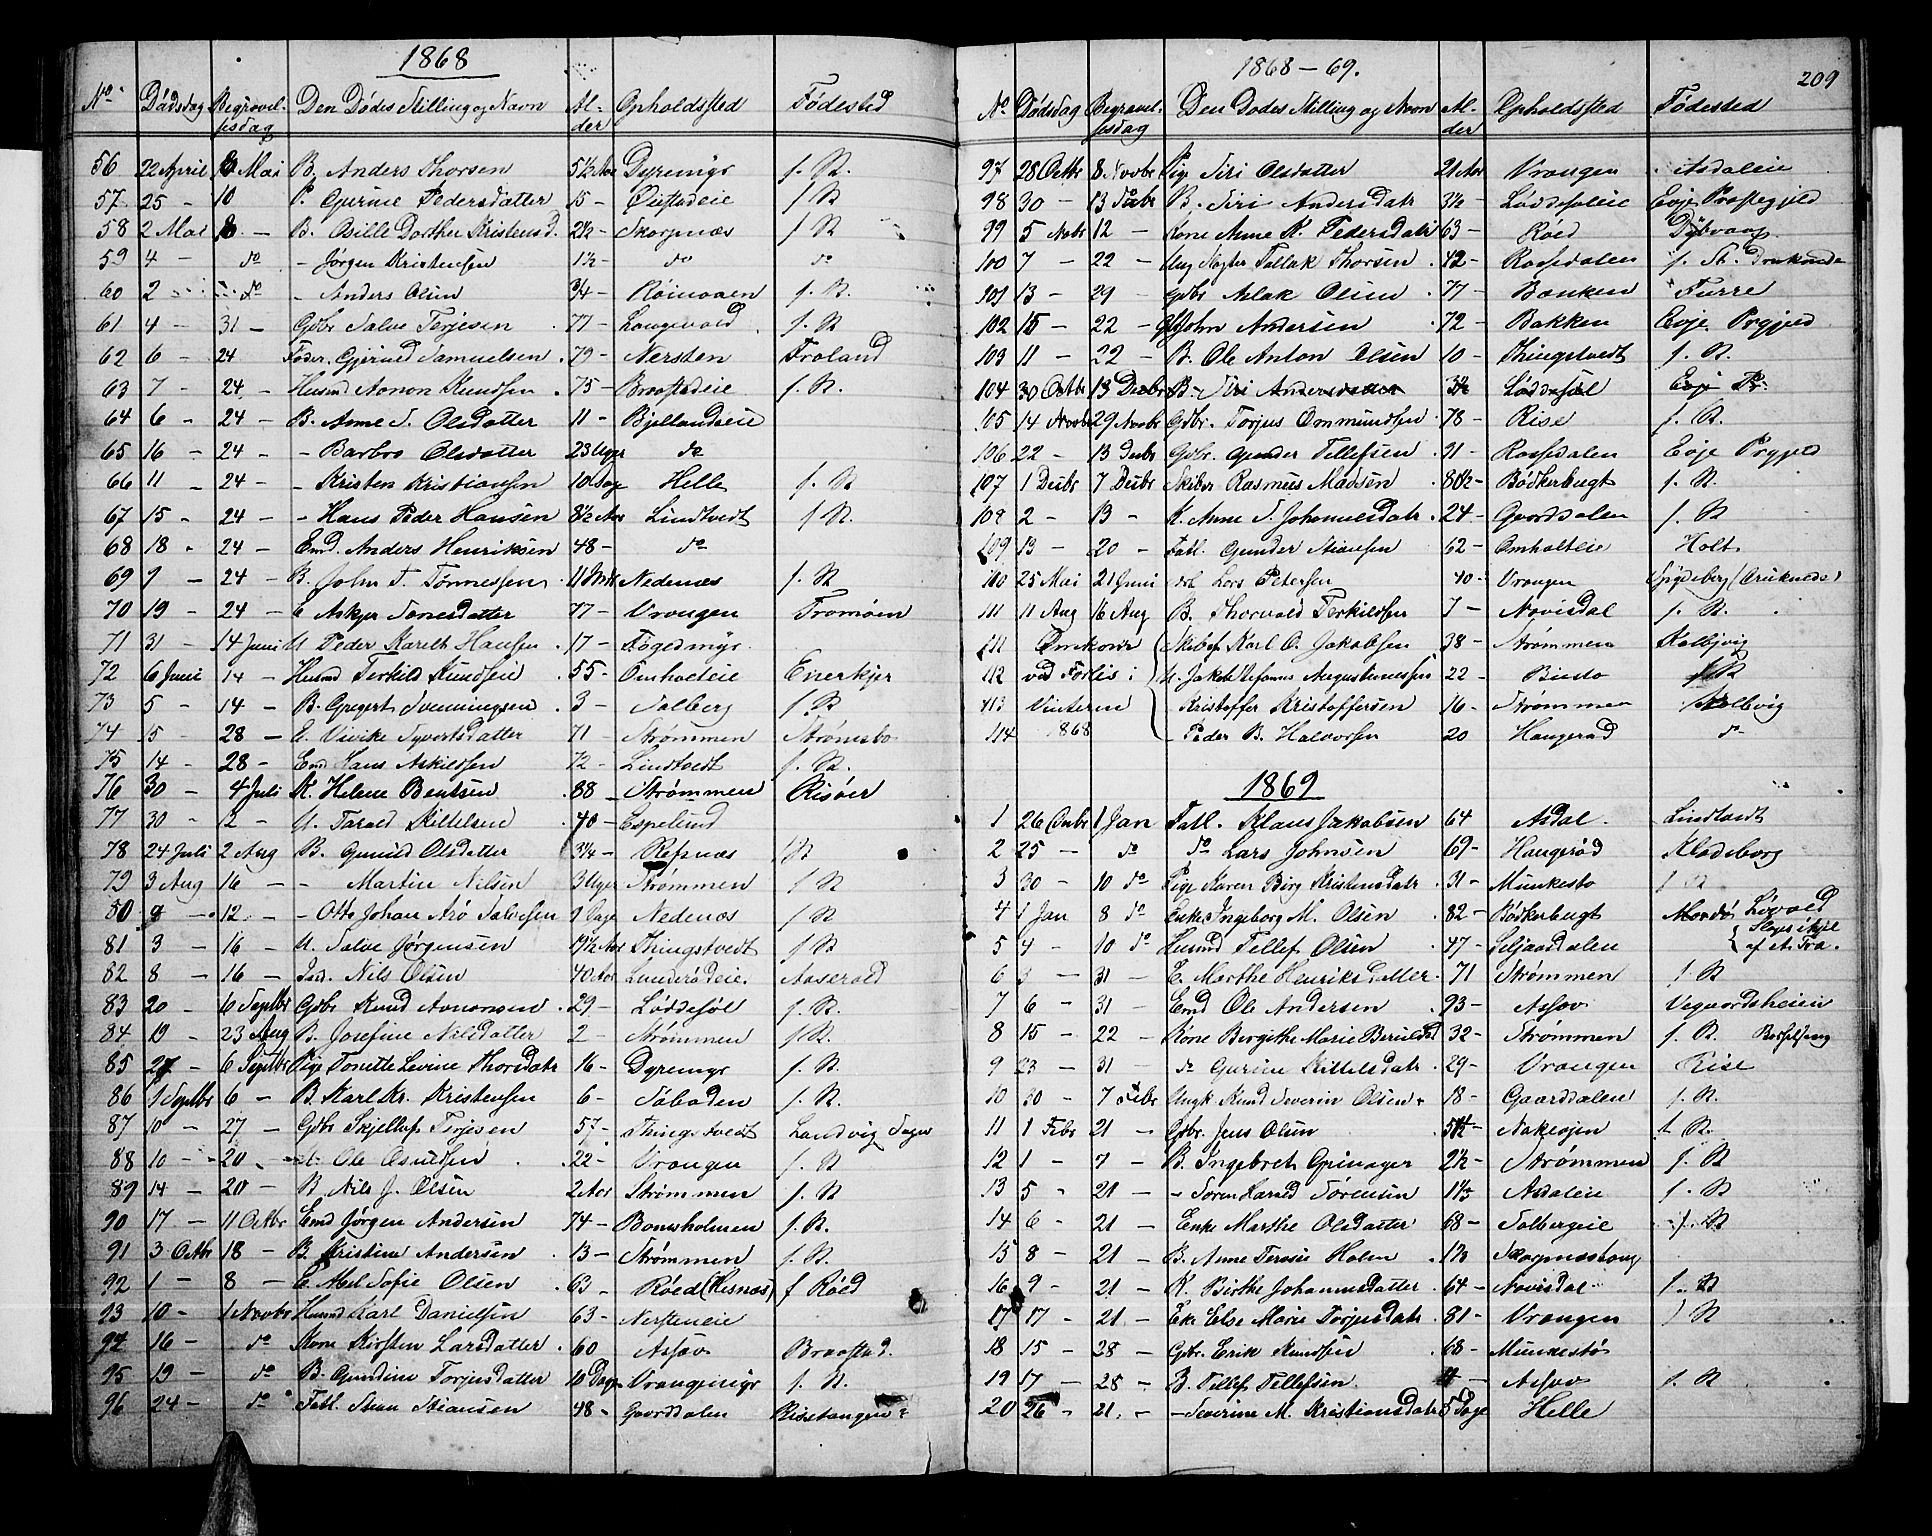 1868
No Dödsdag Begravelsesdag Den Dödes Stilling og Navn Alder Opholdsted Födested
56 22 April 8 Mai B. Anders Thorsen 5½ Aar Dyremyr f. St.
57 25 - 10 P. Gurine Pedersdatter 15 - Öistadeie f St
58 2 Mai 8 - B. Bille Dorthea Kristensd. 2½ - Skarpnæs f St
59 4 - do - Jörgen Kristensen 1½ - do do
60 2 do - Anders Olsen ¾ - f. St.
61 4 - 31 - Gdbr Salve Terjesen 77 - Langevold f. St
62 6 - 24 Föder. Gjerued Samuelsen 79 - Nersten Froland
63 7 - 24 - Husmd Aanon Knudsen 75 - Braastadeie f. St.
64 6 - 24 - B. Anne S. Olsdatter 11 - Bjellandseie
65 16 - 24 - - Barbro Olsdatter 23 Uger do
66 11 - 24 - - Kristen Kristiansen 10 Dag Helle f. St
67 15 - 24 - - Hans Peder Hansen 8½ Aar Lindtvedt f St.
68 18 - 24 - Emd. Anders Henriksen 48 - do
69 9 - 24 - B. John T. Tönnessen 11 Mdr Nedenæs f. St
70 19 - 24 - E Askjer Tonesdatter 77 - Vrangen Tromöen
71 31 - 14 Juni U Peder Hansen 17 - Fogedmyr
72 6 Juni 14 - Husmd Terkild Knudsen 55 - Omholteie Enerkjer
73 5 - 14 - B. Gregert Svenningsen 3 - Solberg f. St
74 15 - 28 - E. Vivike Syvertsdatter 71 - Strömmen Strömsbo
75 14 - 28 - Emd Hans Askildsen 72 - Lindtvedt f. St.
76 30 - 4 Juli K. Helene Bentsen 88 - Strömmen Risöer
77 30 - 12 - U. Tarald Kittelsen 40 - Espelund
78 24 Juli 2 Aug B. Gunild Olsdatter 3¼ - Refsnæs f St
79 3 Aug 16 - - Martin Nilsen 3 Uger Strömmen f St
80 9 - 12 - - Otto Johan Arö Salvesen 9 Dage Nedenæs f St
81 3 - 16 - U. Salve Jörgensen 19½ Aar Thingstvedt f St
82 8 - 16 - Nils Olsen 40 Aar Lunderödeie Aaserald
83 20 - 6 Septbr Gdbr Knud Aanonsen 29 - Löddesöl f. St.
84 19 - 23 Aug B. Josefine Nilsdatter 2 - Strömmen f St.
85 27 - 6 Septbr Pige Tonette Levine Thorsdatr 16 - Dyremyr f. St.
86 1 Septbr 6 - B. Karl Kr. Kristensen 6 - Söboden f. St.
87 10 - 27 - Gdbr Skjellaf Terjesen 57 - Thingstvedt Landvig
88 10 - 20 - U. Ole Osuldsen 22 - Vrangen f. St
89 14 - 20 - B Nils J. Olsen 2 Aar Strömmen f. St
90 17 - 11 Octbr Emd Jörgen Andersen 74 - Bomsholmen f. St.
91 3 Octbr 18 - B Kristine Andersen 13 - Strömmen f. St.
92 1 - 8 - E Mel Sofie Olsen 63 - Röed (Resnæs) f Röed
93 10 - 1 Novbr Husmd Karl Danielsen 63 - Nersteneie
94 16 - do Kone Kirsten Larsdatter 60 Assæv Braastad.
95 19 - do B. Gurdine Torjusdatter 10 Dage Vrangsmyr f. St.
96 24 - do Fatl. Stian Stiansen 48 - Gaarddalen Risstangen
1868-69. 209
No Dödsdag Begravelsesdag Den Dödes Stilling og Navn Alder Opholdsted Födested
97 28 Octbr 8 Novbr Pige Siri Olsdatter 21 Aar Vrangen Asdaleie
98 30 - 13 Debr B. Siri Andersdatr 3½ - Löddesöleie Evje Prestegjeld
99 5 Nobr 12 - Kone Anne K. Pedersdatr 63 - Roed Dybvaag
100 7 - 22 - Ung Slagter Tallak Thorsen 42 - Rossedalen f. St.
101 13 - 29 - Gdbr Aslak Olsen 77 - Banken Furre
102 15 - 22 - John Andersen 72 - Bakken Evje Prgjeld
103 11 - 22 - B. Ole Anton Olsen 10 - Thingstvedt f. St.
104 30 Octbr 13 Decbr B. Siri Andersdatter 3½ Löddesöel Evje Pr.
105 14 Novbr 29 Novbr Gdbr. Torjus Ommundsen 78 - Rise f. St.
106 22 - 13 Debr Gdbr. Gunder Tellefsen 91 - Rossedalen Evje Prgjeld
107 1 Debr 7 Debr Skiber Rasmus Madsen 80½ - Bödkerbugt f. St.
108 2 - 13 - K. Anne S. Johannesdatr 24 - Gaarddalen f. St
109 13 - 20 - Fatl. Gunder Stiansen 62 - Omholteie Holt
110 25 Mai 21 Juni Lars Petersen 40 - Vrangen
111 11 Aug 16 Aug B. Thorvald Terkildsen 7 - Novisdal f. St.
111 Omkomne Karl O. Jakobsen 38 - Strömmen Kalvjvig
112 ved Forlis i U. Jakob Augustinussen 22 - Biedo f St
113 Vinteren Kristoffer Kristoffersen 16 - Strömmen Kolbvig
114 1868 - Peder B. Halvorsen 20 Haugeröd do
1869
1 26 Debr 1 Jan Fatl. Klaus Jakobsen 64 Asdal. Lindtvedt
2 25 - do do Lars Johnsen 69 - Haugeröd Kladeborg
3 30 - 10 do Pige Karen Birg Kristensdatr 31 - Munkesto f St
4 1 Jan 8 do Enke Ingeborg M. Olsen 82 - Bödkerbugt Lövold
5 4 - 10 do Husmd Tellef Olsen 47 - Seljaasdalen
6 3 - 31 - E. Marthe Henriksdatter 71 Strömmen f St
7 6 - 31 - Emd Ole Andersen 93 - Assæv Vegaardsheien
8 15 - 22 - Kone Bergithe Marie Berulds 32 - Strömmen f. St.
9 23 - 31 - do Gurine Kittelsdatr 29 - Vrangen Rise
10 30 - 7 Febr Ungk Knud Severin Olsen 18 - Gaarddalen f. St.
11 1 Febr 21 - Gdbr. Jens Olsen 5½ - Nakesjen f. St.
12 1 - 7 - B. Ingebret Grinager 2½ - Strömmen f. St
13 5 - 21 - - Soren Larsed Sörensen 1⅓ - Asdaleie f. St
14 6 - 21 - Enke Marthe Olsdatter 68 - Solbergeie f. St
15 8 - 21 - B. Anne Terese Holen Skarpnæshaug
16 9 - 21 - K. Birthe Johannesdatter 64 - Novisdal f. St
17 17 - 21 - Eke Else Marie Torjusdatr 81 - Vrangen f St
18 15 - 28 - Gdbr. Erik Knudsen 68 - Munkestö
19 17 - 28 - B. Tellef Tellefsen 4 - Assæv f. St
20 26 - 21 - - Severine M. Kristiansdatr 5 Dage Helle